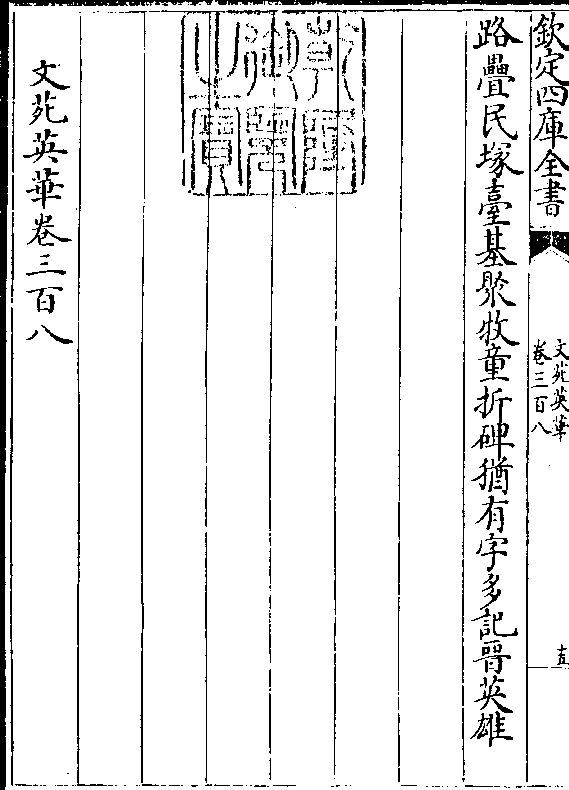 欽定四庫全書
文苑英華
卷三百八
十五
路疊民塚臺基聚牧童折碑猶有字多記晉英雄
乾隆御覽之寶
文苑英華卷三百八